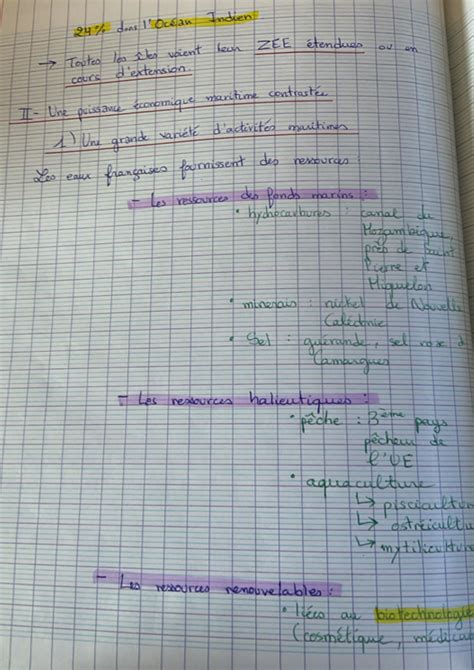 24% dans l'Océan Indien
→ Toutes les îles voient leur ZEE étendues ou en
cours d'extension
II - Une puissance économique maritime contrastée
1) Une grande variété d'activités maritimes
Les eaux françaises fournissent des ressources
- Les ressources des fonds marins :
• hydrocarbures : canal du
Mozambique,
près de Saint
Pierre et
Miquelon
• minerais : nickel de Nouvelle
Calédonie
• Sel : guérande, sel rose d
Camargues
- Les ressources halieutiques :
• pêche : 3ème pays
pêcheur de
l'UE
• aquaculture
↳ piscicultur
↳ ostréicultu
↳ mytilicultu
- Les ressources renouvelables :
• liées au biotechnologie
(cosmétique, médica